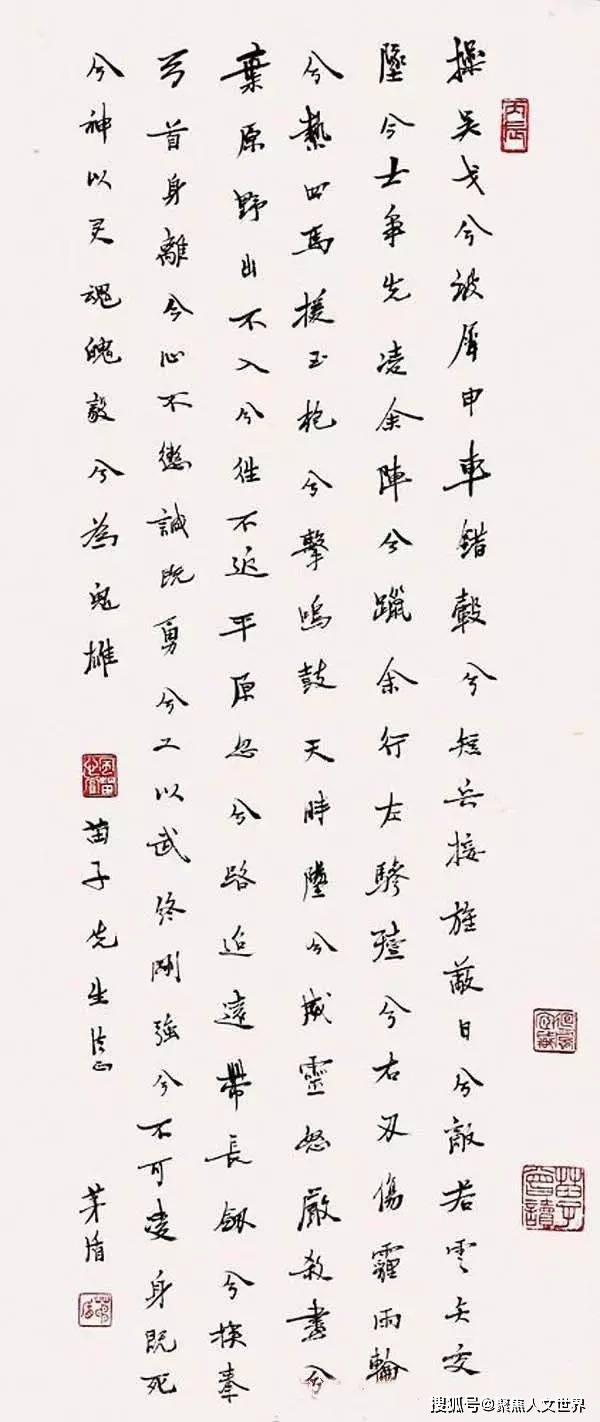 操吴戈兮被犀申車錯毂兮短兵接旌蔽日兮敵若雲矢交
墜兮士爭先凌余陣兮躐余行左驂殪兮右刃傷霾兩輪
兮縶四馬援玉枹兮擊鳴鼓天時墜兮威靈怒嚴殺盡兮
棄原野出不入兮往不返平原忽兮路迢遠帶長劍兮挾秦
弓首身離兮心不懲誠既勇兮又以武終剛強兮不可凌身既死
兮神以灵魂魄毅兮為鬼雄
苗子先生法正
茅盾
丙辰
苗子曾讀
搜狐号@聚焦人文世界